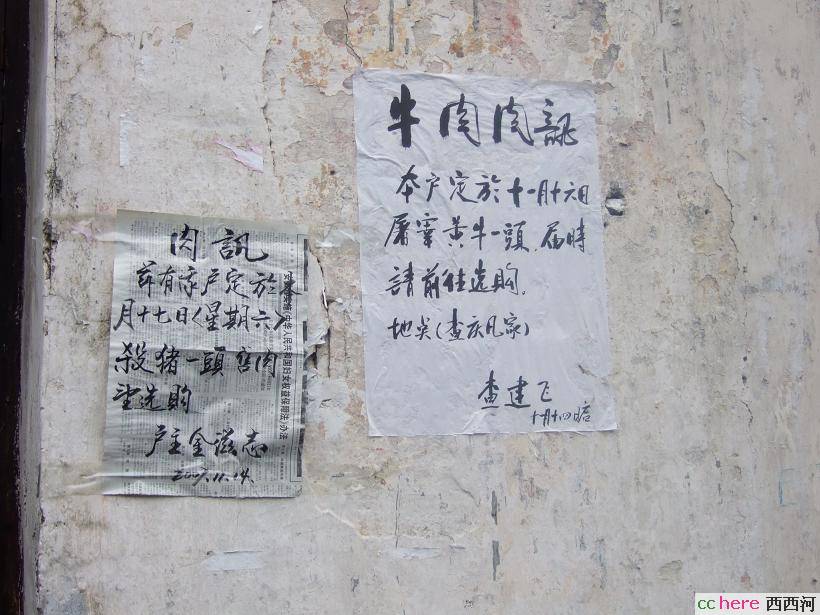 肉訊
茲有家户定於本
月十七日(星期六)
殺猪一頭售肉
望选购
户主金滋志
2007.11.14.
中华人民共和国妇女权益保障法》办法
牛肉肉訊
本户定於十一月十六日
屠宰黄牛一頭,届時
請前往选购。
地点(查庆凡家)
查建飞
cchere 西西河